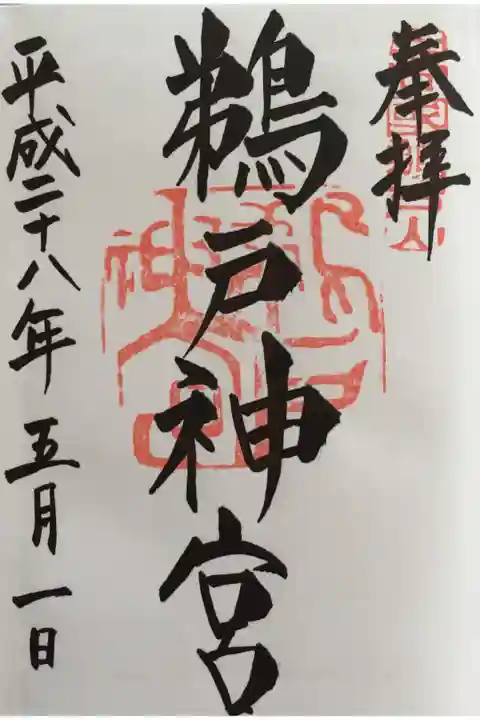 奉拝
鵜戸神宮
平成二十八年五月一日